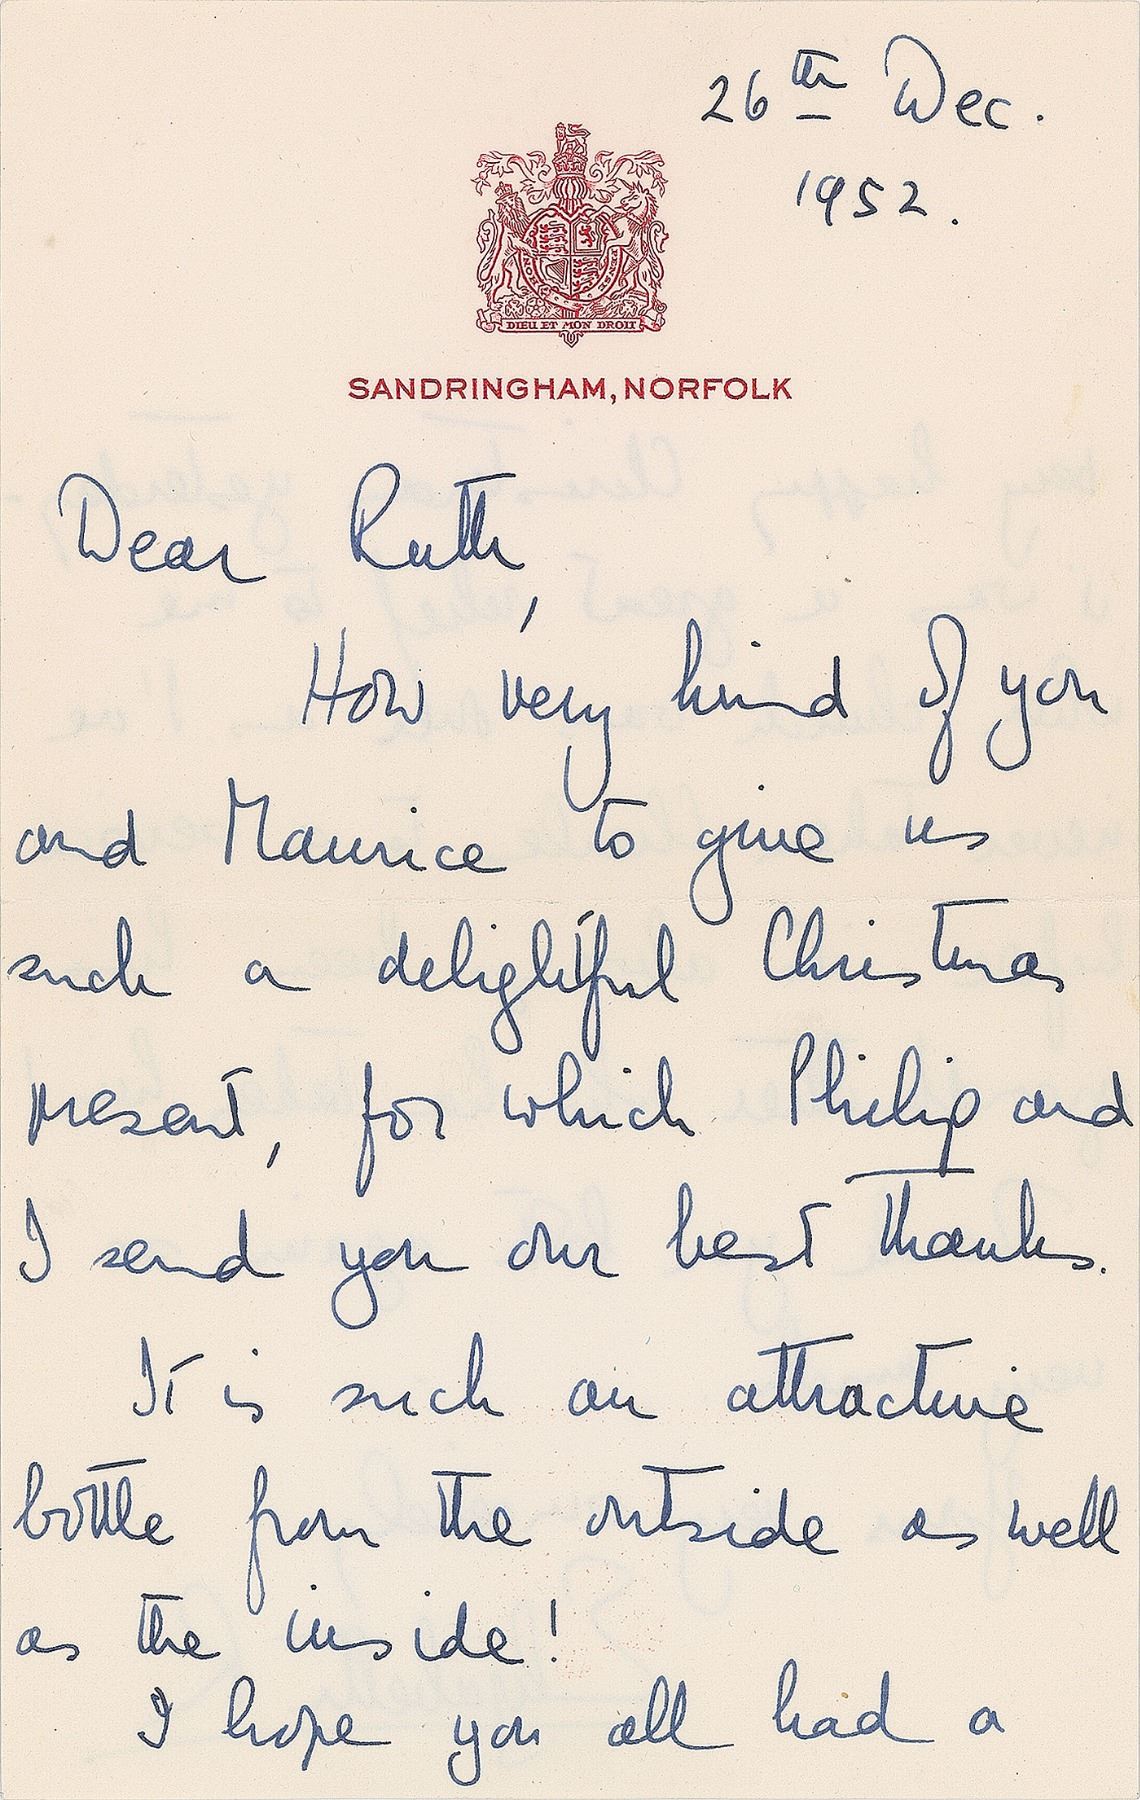 26th Dec.
1952.
DIEU ET MON DROIT
SANDRINGHAM, NORFOLK
Dear Ruth,
How very kind of you
and Maurice to give us
such a delightful Christmas
present, for which Philip and
I send you our best thanks.
It is such an attractive
bottle from the outside as well
as the inside!
I hope you all had a